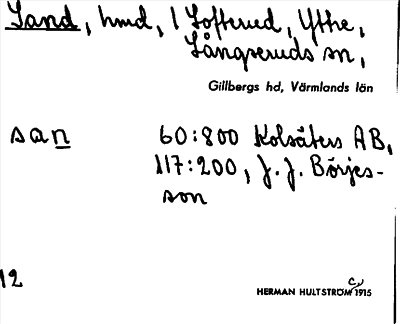 Sand, hmd, 1 Softerud, Yttre,
Långseruds sn,
Gillbergs hd, Värmlands län
san 60:800 Kolsäters AB,
117:200, J. J. Börjes-
son
12
HERMAN HULTSTRÖM 1915